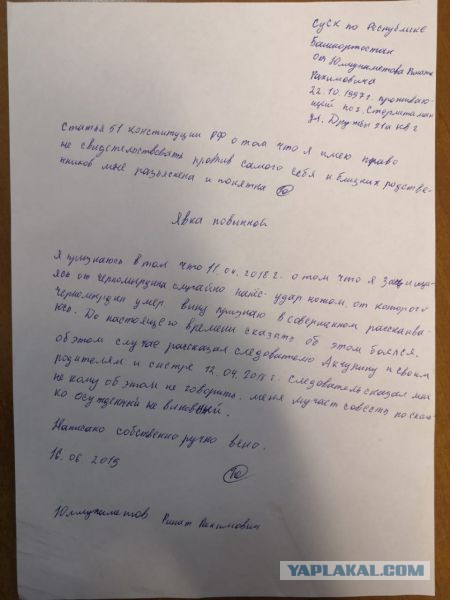 СУСК по Республике
Башкортостан
от Юлмухаметова Рината
Рахимовича
22.10.1997г. проживаю-
щий по г. Стерлитамак
ул. Дружбы 21а кв 2
Статья 51 конституции РФ о том что я имею право
не свидетельствовать против самого себя и близких родстве-
нников мне разъяснена и понятна Ю
Явка повинной
Я признаюсь в том что 11.04.2018 г. о том что я защища-
ясь от Черномырдина случайно нанёс удар ножом, от которого
Черномырдин умер. вину признаю в совершенном раскаива-
юсь. До настоящего времени сказать об этом боялся.
об этом случае рассказал следователю и своим
родителям и сестре 12.04.2018 г. следователь сказал мне
не кому об этом не говорить. меня мучает совесть поскаль-
ко осужденный не виновный.
Написано собственно ручно вено.
16.06.2019
Ю
Юлмухаметов Ринат Рахимович
YAPLAKAL.COM